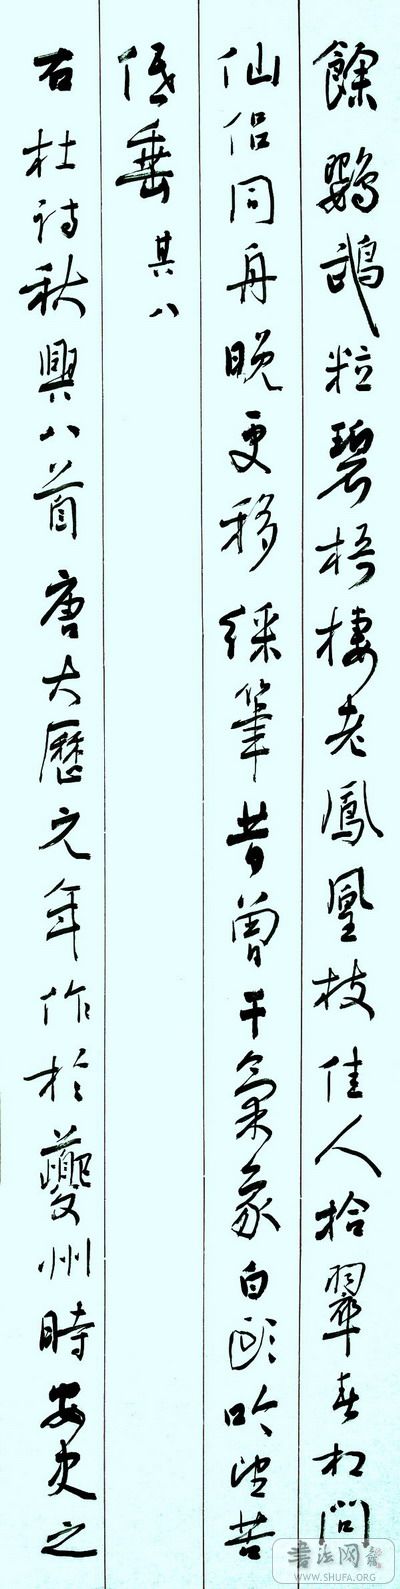 餘鸚鵡粒碧梧棲老鳳凰枝佳人拾翠春相問
仙侣同舟晚更移綵筆昔曾干氣象白頭吟望苦
低垂 其八
右杜詩秋興八首唐大歷元年作於夔州時安史之
WWW.SHUFA.ORG